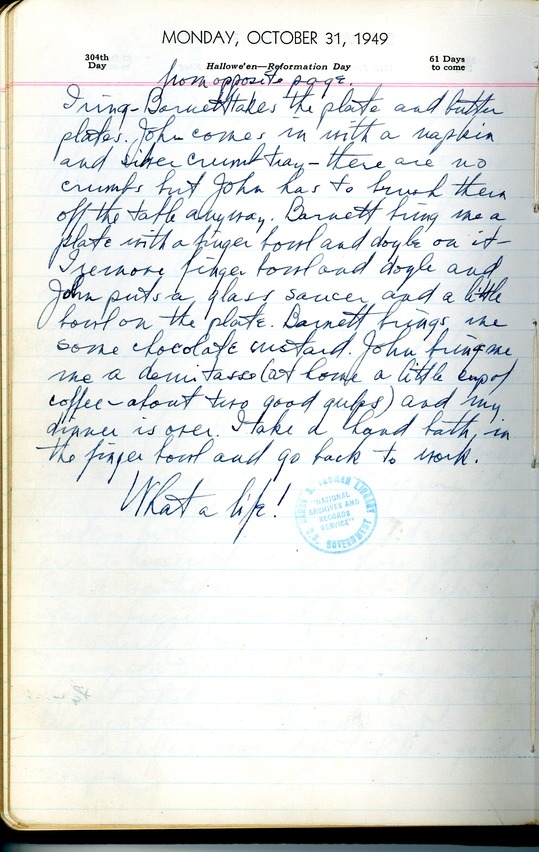 MONDAY, OCTOBER 31, 1949
304th Day
Hallowe'en—Reformation Day
61 Days to come
from opposite page.
I ring—Barnett takes the plate and butter
plates. John comes in with a napkin
and silver crumb tray—there are no
crumbs but John has to brush them
off the table anyway. Barnett bring me a
plate with a finger bowl and doyle on it—
I remove finger bowl and doyle and
John puts a glass saucer and a little
bowl on the plate. Barnett brings me
some chocolate custard. John brings me
me a demitasse (at home a little cup of
coffee—about two good gulps) and my
dinner is over. I take a hand bath in
the finger bowl and go back to work.
What a life!
HARRY S. TRUMAN LIBRARY
"NATIONAL
ARCHIVES AND
RECORDS
SERVICE"
U.S. GOVERNMENT